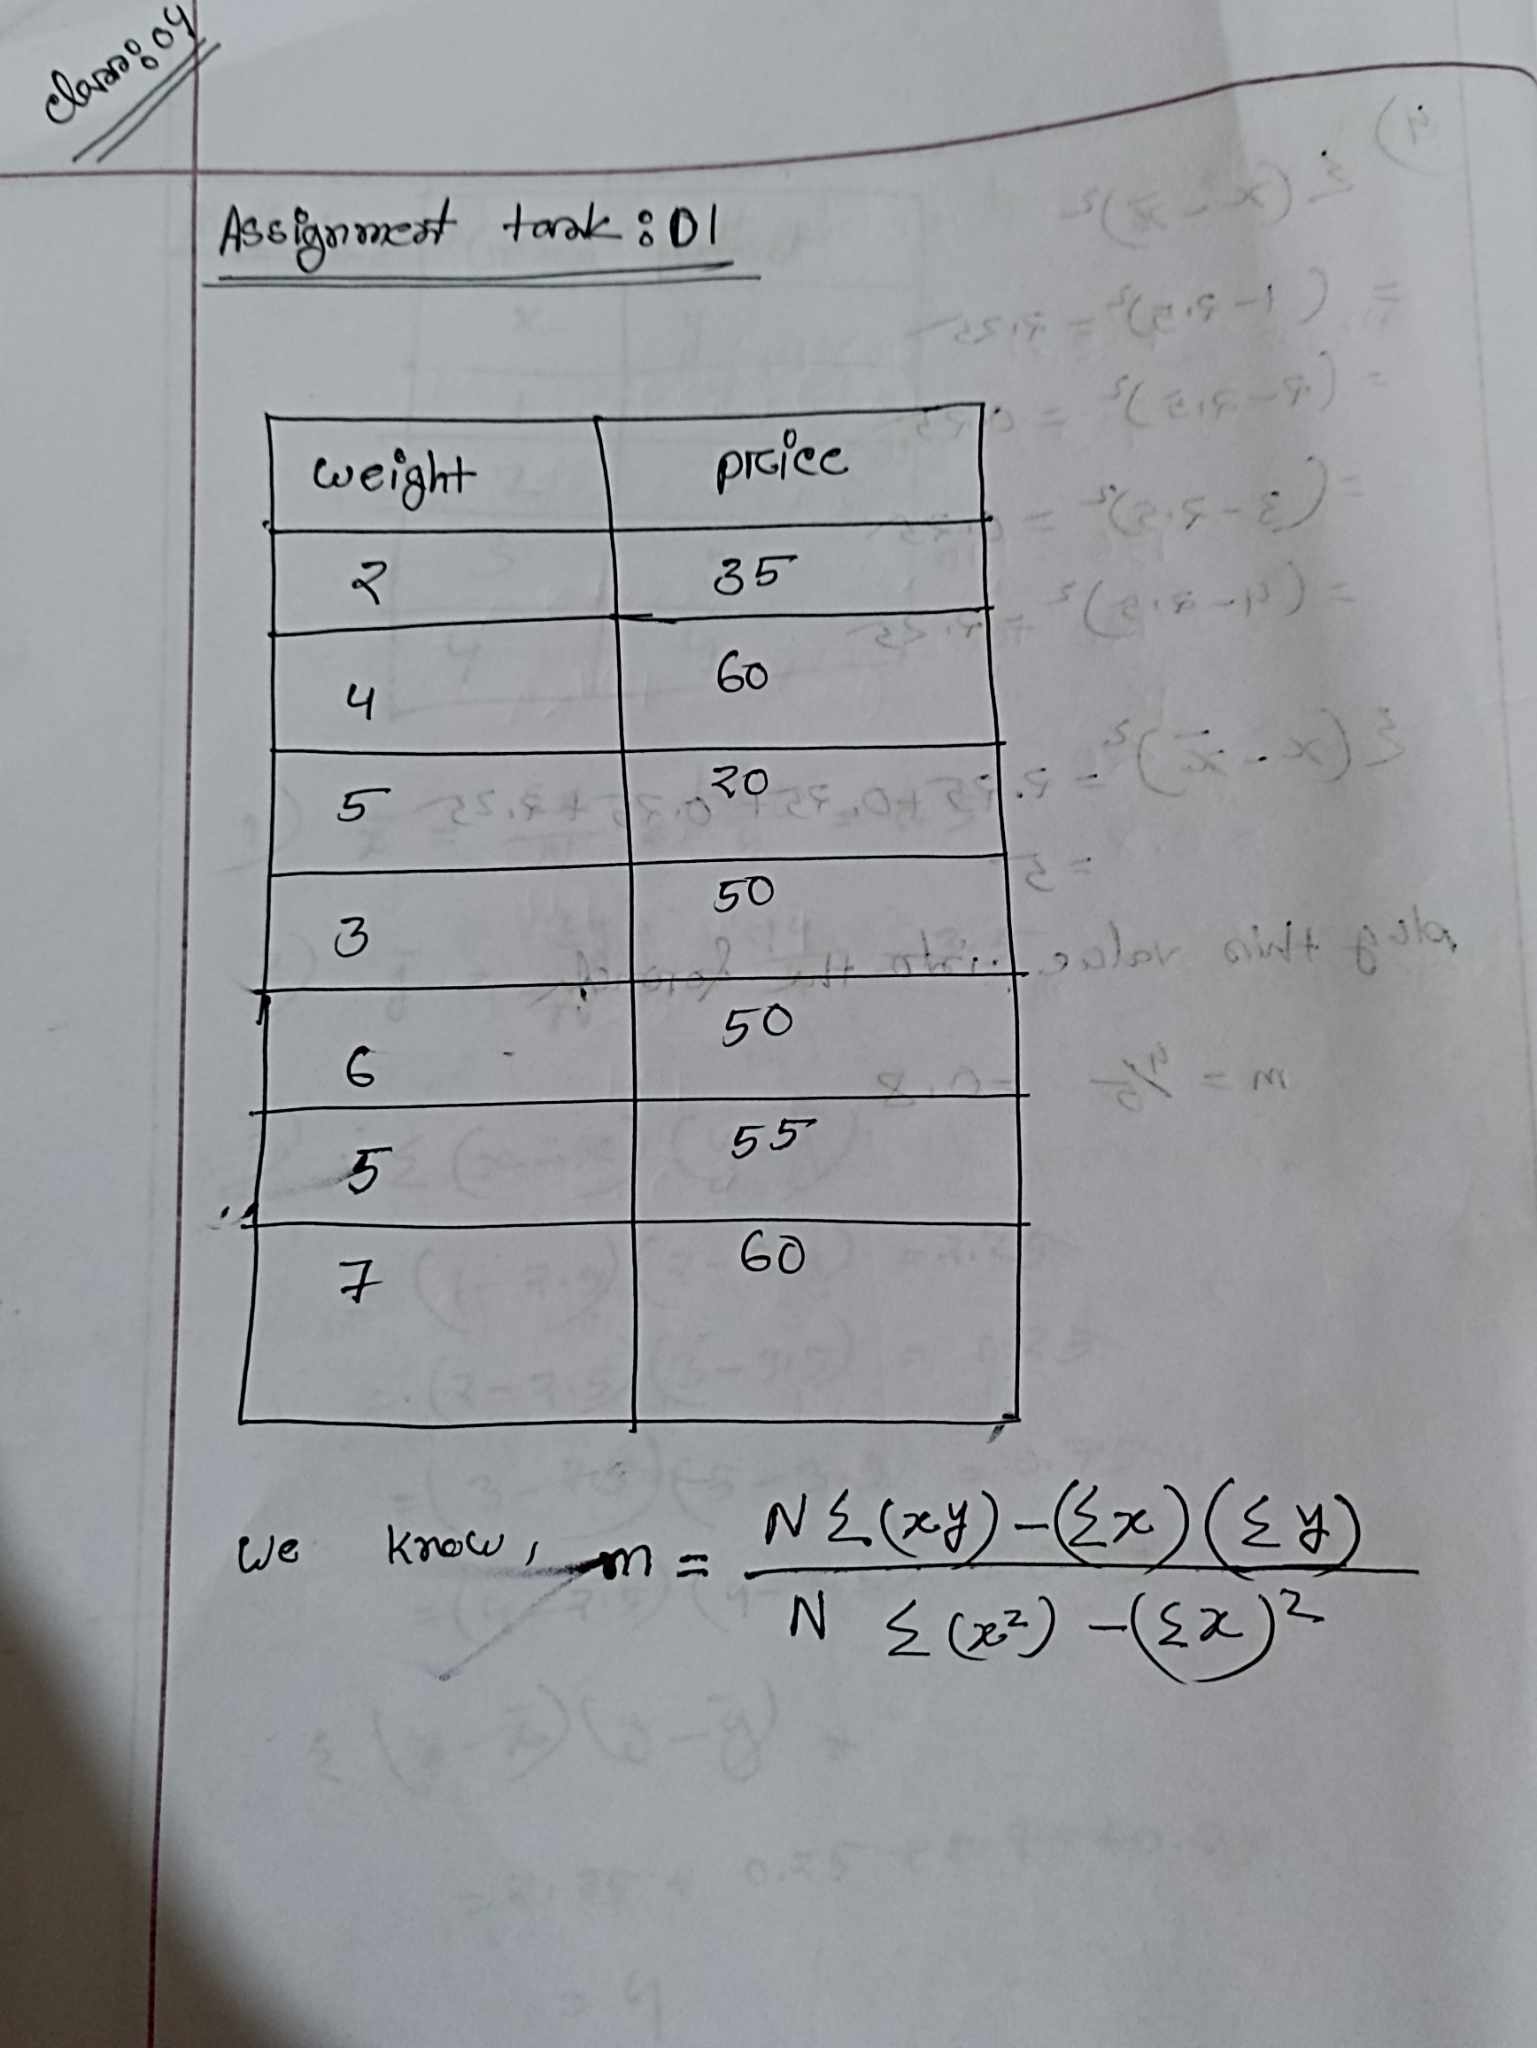 class: 04
Assignment task: 01
weight price
2 35
4 60
5 20
3 50
6 50
5 55
7 60
we know, m = N Σ(xy) - (Σx) (Σy)
N Σ (x²) - (Σx)²